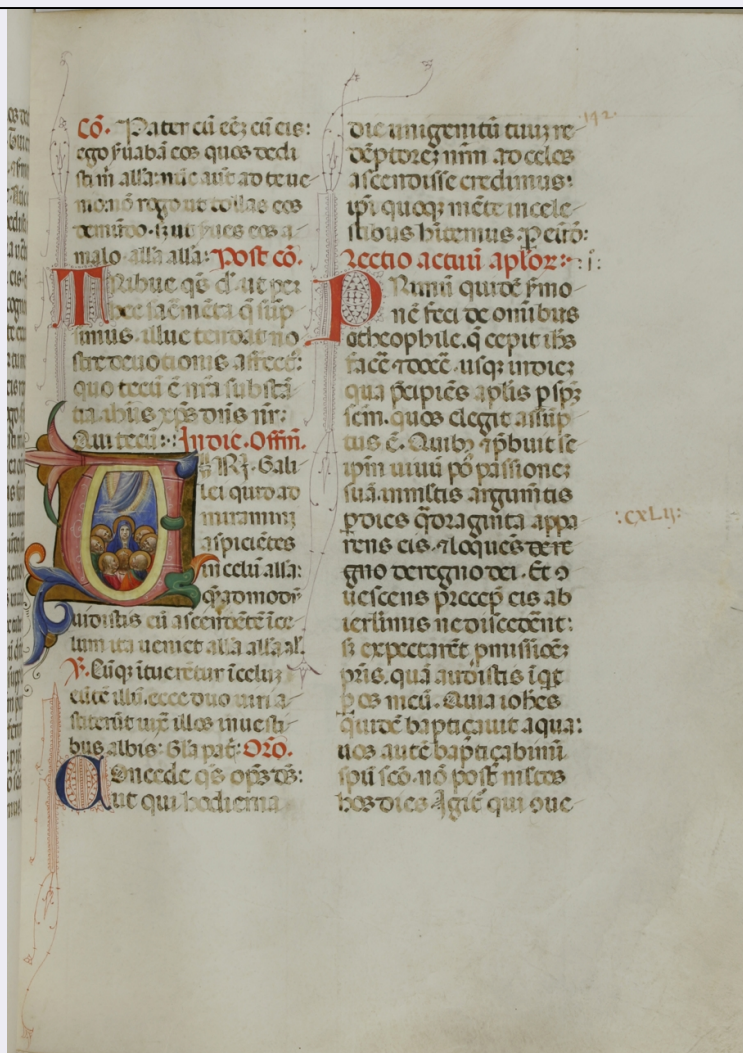 Cō. Pater cū eēz cū eis:
ego ẜuabā eos quos dedi
sti m̄ alła: nūc aut̄ ad te ue
nio nō rogo ut tollas eos
de mūdo. ut eos a
malo. alła alła: Post cō.
Tribue qs̄ d̄s ut per
hec sacm̄ēta q̄ sūp
simus. illuc tendat no
stre deuotionis affect̄:
quo tecū ē nr̄a substā
tia. ihūs xp̄s dn̄s nr̄:
Qui tecū: In die. Offm̄.
UIRI. Gali
lei quid ad
miramini
aspiciētes
in celū alła:
q̄admodū
uidistis eū ascendētē ī ce
lum ita ueniet alła alła al̄.
℣. Cūq ītuerētur ī celuz
eūtē illū. ecce duo uiri a
stiterūt iuxͭ illos in uesti
bus albis. Gła pat̄: Orō.
Concede qs̄ op̄s ds̄:
ut qui hodierna
die unigenitū tuuz re
dēptorez nr̄m ad celos
ascendisse credimus:
ip̄i quoqz mēte in cele
stibus hītemus. ꝑ eūd̄:
Lectio actuū apłor: i:
Primū quidē ẜmo
nē feci de omībus
o theophile. q̄ cepit ihs̄
facē ⁊ docē. usqz in diez
qua p̄cipiēs aplis p sp̄z
scm̄. quos elegit assūp
tus ē. Quibꝫ ⁊ p̄buit se
ip̄m uiuū pꝰ passionez
suā. in mltis argum̄tis
ꝑ dies q̄draginta appa
rens eis. ⁊ loquēs de re
gno de regno dei. Et ꝯ
uescens p̄cep̄ eis ab
ierłimis ne discedēnt:
sꝫ expectarēt ꝓmissiōez
pr̄is. quā audistis īqt
ꝑ os meū. Quia ioh̄es
quidē baptiçauit aqua:
uos autē baptiçabimī
spū scō. nō post mltos
hos dies. Igit̄ qui oue
192.
:CXLIJ: